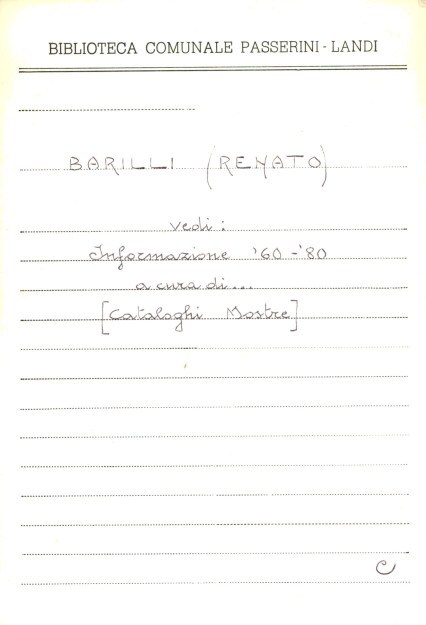 BIBLIOTECA COMUNALE PASSERINI - LANDI
BARILLI (RENATO)
vedi:
Informazione '60 - '80
a cura di...
[Cataloghi Mostre]
C